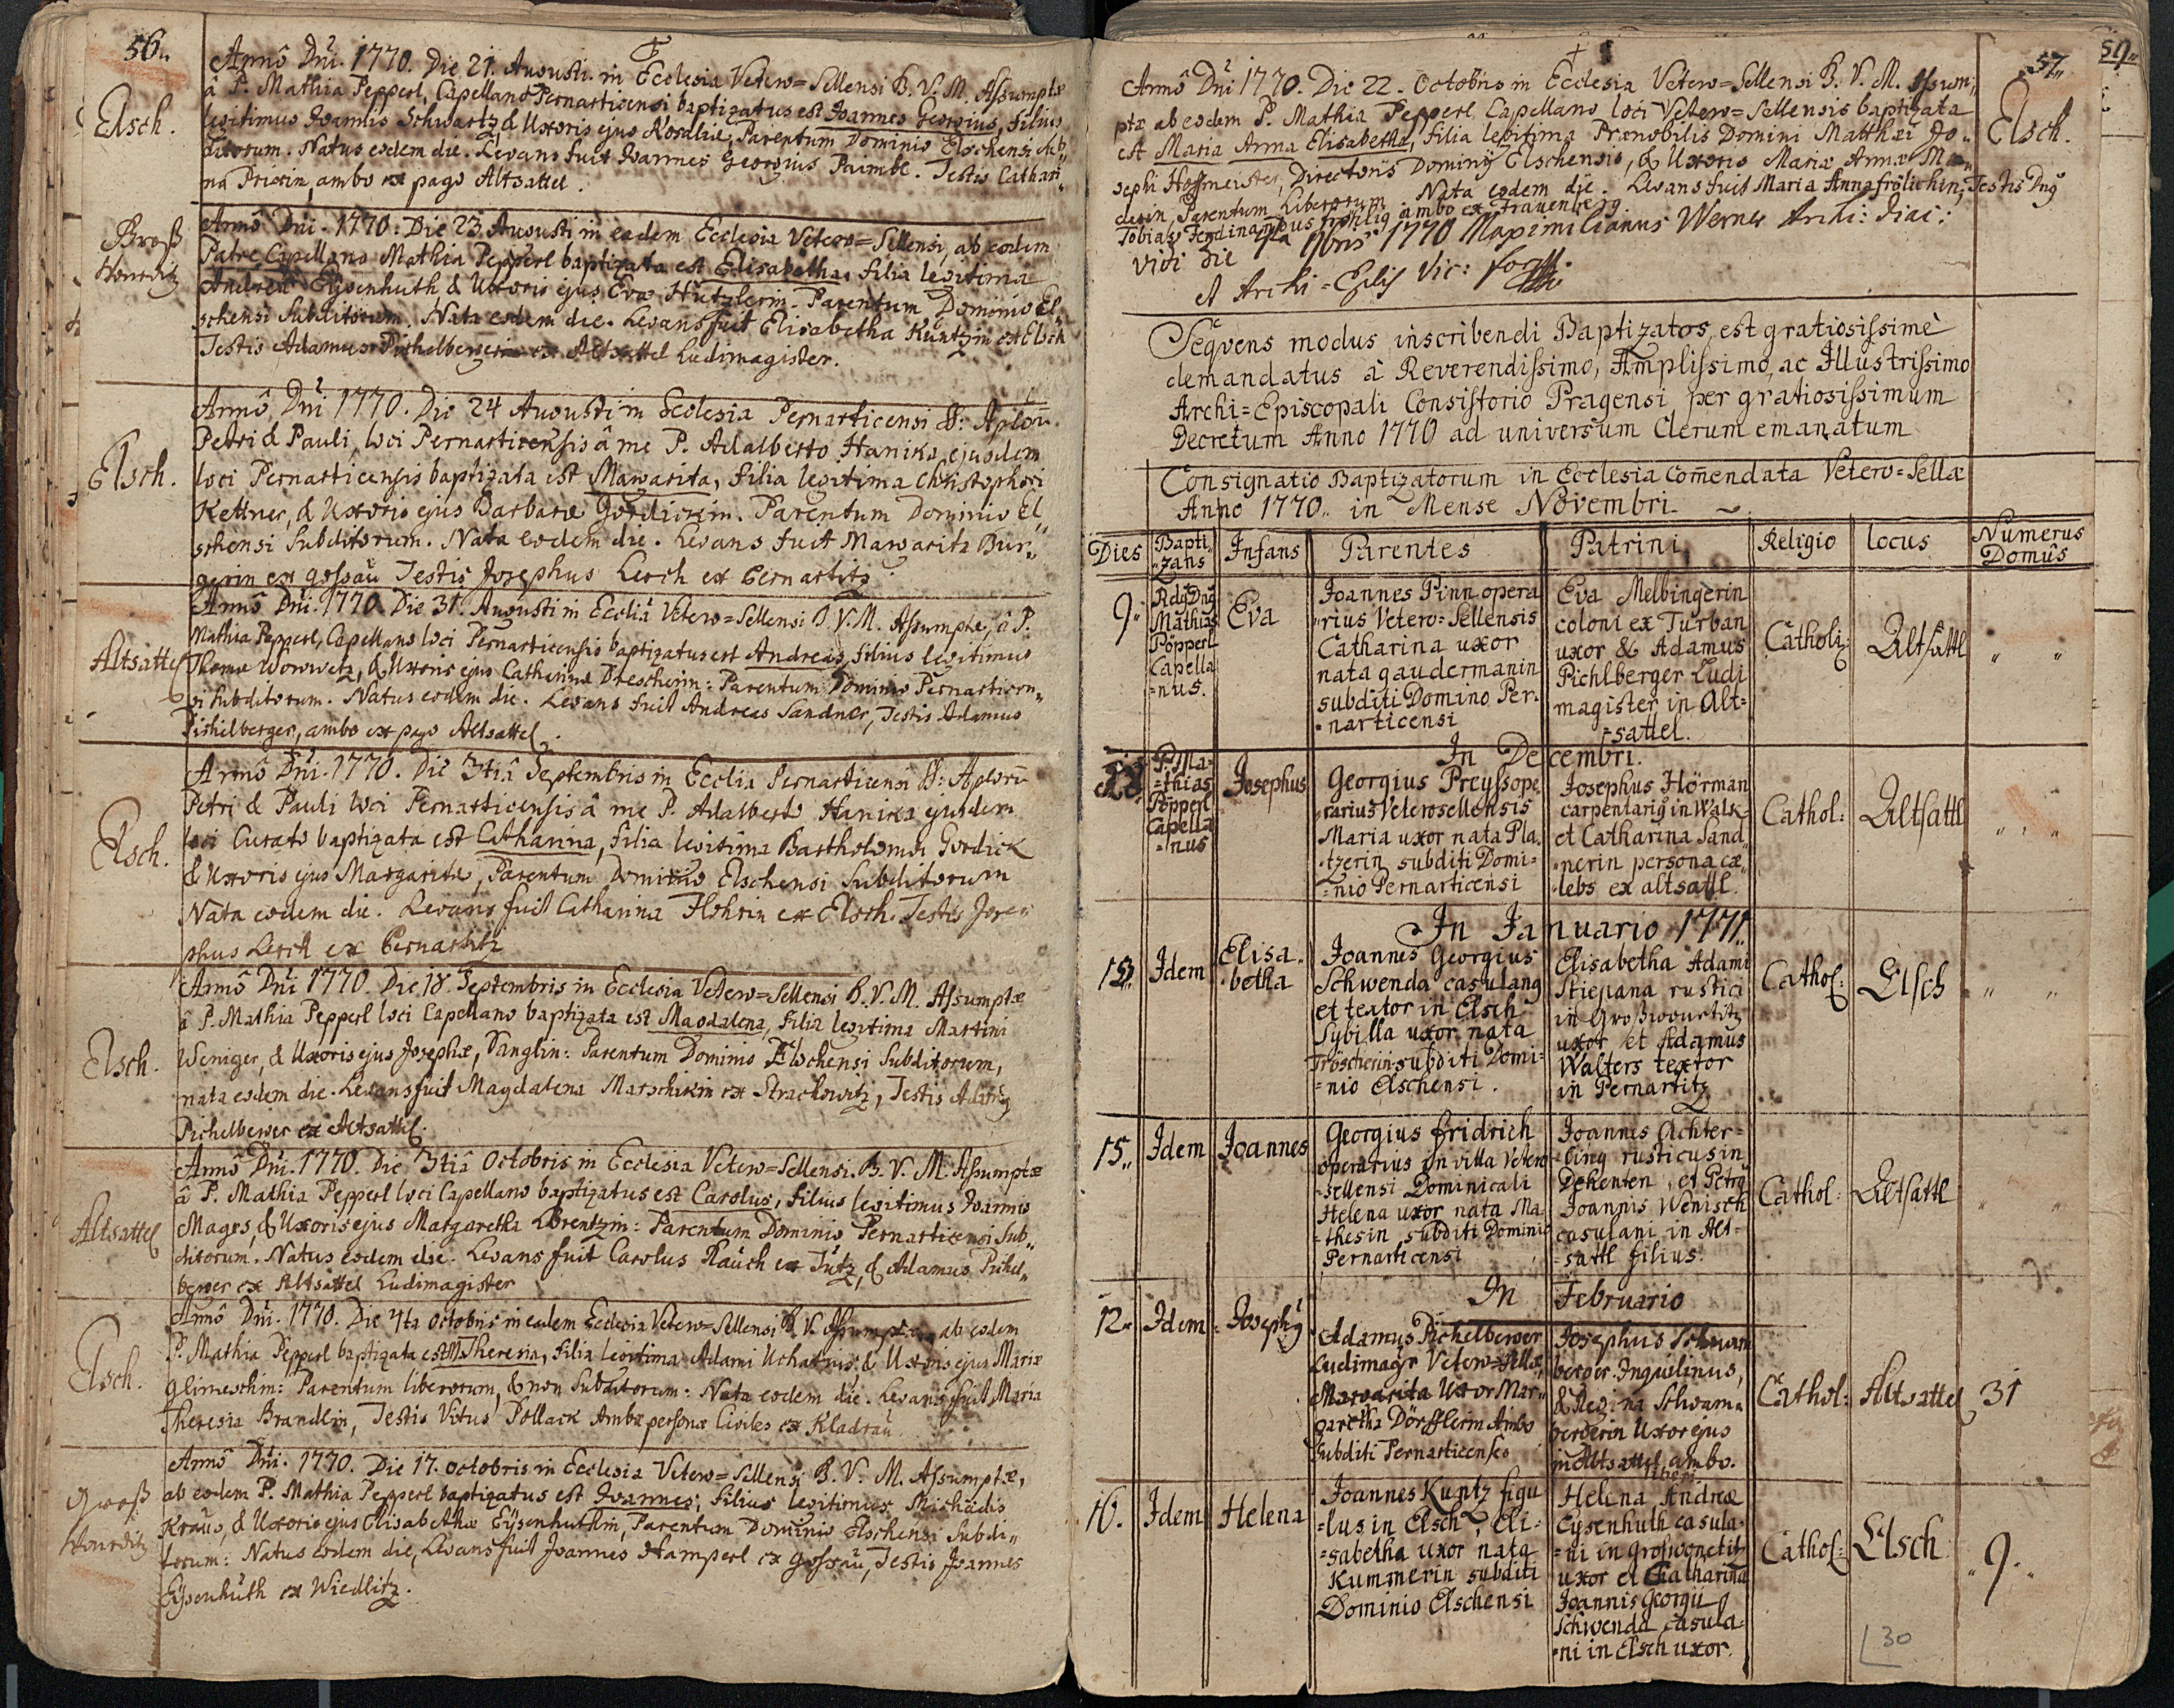 56.
Elsch.
Anno Dni. 1770. Die 21. Augusti in Ecclesia Vetero=Sellensi B. V. M. Assumptæ
â P. Mathia Pepperl, Capellano Pernarticensi baptizatus est Joannes Georgius, filius
legitimus Joannis Schwartz, & Uxoris ejus Rosaliæ, Parentum Dominio Elschensi Sub„
ditorum. Natus eodem die. Levans fuit Joannes Georgius Paimbl. Testis Cathari„
na ambo ex pago Altsattel.
Groß
Wonditz
Anno Dni. 1770. Die 23 Augusti in eadem Ecclesia Vetero=Sellensi, ab eodem
Patre Capellano Mathia Pepperl baptizata est Elisabetha, filia legitima
Andreæ Eysenhuth & Uxoris ejus Evæ Hutzlerin. Parentum Dominio El„
schensi Subditorum. Nata eodem die. Levans fuit Elisabetha Kuntzin ex Elsch
Testis Adamus Pichelberger ex Altsattel Ludimagister.
Elsch.
Anno Dni 1770. Die 24 Augusti in Ecclesia Pernarticensi SS: Aplorū.
Petri & Pauli, loci Pernarticensis â me P. Adalberto Hanika, ejusdem
loci Pernarticensis baptizata est Margarita, filia legitima Christophori
Kettner, & Uxoris ejus Barbaræ Gordickin. Parentum Dominio El„
schensi Subditorum. Nata eodem die. Levans fuit Margarita Bur„
gerin ex gossau Testis Josephus Lerch ex Pernartitz
Altsattel
Anno Dni. 1770. Die 31. Augusti in Ecclia Vetero=Sellensi B. V. M. Assumptæ, â P.
Mathia Pepperl, Capellano loci Pernarticensis baptizatus est Andreas, filius legitimus
Thomæ Worwetz, & Uxoris ejus Catharinæ Drescherin: Parentum Dominio Pernarticen„
si Subditorum. Natus eodem die. Levans fuit Andreas Sandner, Testis Adamus
Pichelberger, ambo ex pago Altsattel.
Elsch.
Anno Dni. 1770. Die 3tiâ Septembris in Ecclia Pernarticensi SS: Aplorū
Petri & Pauli loci Pernarticensis â me P. Adalberto Hanika ejusdem
loci Curato baptizata est Catharina, filia legitima Bartholomæi Gordick
& Uxoris ejus Margaritæ, Parentum Dominio Elschensi Subditorum
Nata eodem die. Levans fuit Catharina Flohrin ex Elsch. Testis Jose„
phus Lerch ex Pernartitz
Elsch.
Anno Dni 1770. Die 18. Septembris in Ecclesia Vetero=Sellensi B. V. M. Assumptæ
â P. Mathia Pepperl loci Capellano baptizata est Magdalena, filia legitima Martini
Weniger, & Uxoris ejus Josephæ, Danglin: Parentum Dominio Elschensi Subditorum,
nata eodem die. Levans fuit Magdalena Marschikin ex Strachowitz, Testis Adamus
Pichelberger ex Altsattel.
Altsattel
Anno Dni. 1770. Die 3tiâ Octobris in Ecclesia Vetero=Sellensi. B. V. M. Assumptæ
â P. Mathia Pepperl loci Capellano baptizatus est Carolus, filius legitimus Joannis
Mages, & Uxoris ejus Margaretha Lorentzin: Parentum Dominio Pernarticensi Sub„
ditorum. Natus eodem die. Levans fuit Carolus Rauch ex Tutz, & Adamus Pichel„
berger ex Altsattel Ludimagister
Elsch.
Anno Dni. 1770. Die 4ta Octobris in eadem Ecclesia Vetero=Sellensi B. V. Assumptæ ab eodem
P. Mathia Pepperl baptizata est M. Theresia, filia legitima Adami Uchatius, & Uxoris ejus Mariæ
glimeschin: Parentum liberorum, & non Subditorum: Nata eodem die. Levans fuit Maria
Theresia Brandlin, Testis Vitus Pollack Ambæ personæ Civiles ex Kladrau.
Groß
Wonditz
Anno Dni. 1770. Die 17. Octobris in Ecclesia Vetero=Sellensi B. V. M. Assumptæ,
ab eodem P. Mathia Pepperl baptizatus est Joannes, filius legitimus Michaelis
Kraus, & Uxoris ejus Elisabethæ Eysenhuthin, Parentum Dominio Elschensi Subdi„
torum: Natus eodem die, Levans fuit Joannes Hamperl ex gossau, Testis Joannes
Eysenhuth ex Wiedlitz.
57
Elsch.
Anno Dni 1770. Die 22. Octobris in Ecclesia Vetero=Sellensi B. V. M. Assum„
ptæ ab eodem P. Mathia Pepperl Capellano loci Vetero=Sellensis baptizata
est Maria Anna Elisabetha, filia legitima Prænobilis Domini Matthæi Jo„
sephi Hoffmeister, Directoris Dominij Elschensis, & Uxoris Mariæ Annæ Ma„
derin, Parentum Liberorum. Nata eodem die. Levans fuit Maria Anna frölichin, Testis Dnus
Tobias Ferdinandus frohlig ambo ex Frauenberg.
Vidi die 9bris 1770 Maximilianus Werner Archi: diac:
A Archi=Eplis Vic: for
Seqvens modus inscribendi Baptizatos, est gratiosissimè
demandatus à Reverendissimo, Amplissimo, ac Illustrissimo
Archi=Episcopali Consistorio Pragensi per gratiosissimum
Decretum Anno 1770 ad universum Clerum emanatum
Consignatio Baptizatorum in Ecclesia Com̄endata Vetero=Sellæ
Anno 1770.. in Mense Novembri.
Dies Bapti„zans Infans Parentes Patrini Religio Locus Numerus Domûs
9. Rdus Dnus Mathias Pöpperl Capella=nus.
Eva
Joannes Pinn opera
„rius Vetero=Sellensis
Catharina uxor
nata gaudermanin
subditi Domino Per=
narticensi
Eva Melbingerin
coloni ex Turban
uxor & Adamus
Pichlberger Ludi
magister in Alt=
=sattel.
Catholi:
Altsattl
In Decembri.
P. Ma=
=thias
Pöpperl
Capella
=nus
Josephus
Georgius Preyss ope
rarius Veterosellensis
Maria uxor nata Pla„
„tzerin subditi Domi=
=nio Pernarticensi
Josephus Hörman
carpentarius in Walk
et Catharina Sand„
„nerin persona cæ„
„lebs ex altsattl.
Cathol:
Altsattl
In Januario 1771
Idem
Elisa„
betha
Joannes Georgius
Schwenda casulanus
et textor in Elsch
Sybilla uxor nata
Tröscherin subditi Domi=
=nio Elschensi.
Elisabetha Adami
Stiepana rustici
in Großwourtitz
uxor et Adamus
Walters textor
in Pernartitz
Cathol:
Elsch
15.
Idem
Joannes
Georgius fridrich
operarius in villa Vetero
=sellensi Dominicali
Helena uxor nata Ma
=thesin subditi Dominio
Pernarticensi
Joannes Achter=
=ling rusticus in
Dehenten, et Petrus
Joannis Wenisch
casulani in Alt=
=sattl filius.
Cathol:
Altsattl
In Februario
12.
Idem
Josephus
Adamus Pichelberger
Ludimagr Vetero=Sellæ
Margarita Uxor Mar„
garetha Dörfflerin Ambo
Subditi Pernarticenses
Josephus Schwam
berger Inquilinus,
& Regina Schwam„
bergerin Uxor ejus
in Altsattel ambo.
liberi.
Cathol:
Altsattel
31
16.
Idem
Helena
Joannes Kuntz figu
=lus in Elsch, Eli=
=sabetha uxor nata
Kummerin subditi
Dominio Elschensi
Helena Andreæ
Eysenhuth casula=
=ni in groswonetitz
uxor et Catharina
Joannis Georgii
Schwenda casula=
=ni in Elsch uxor.
Cathol:
Elsch
9.
30